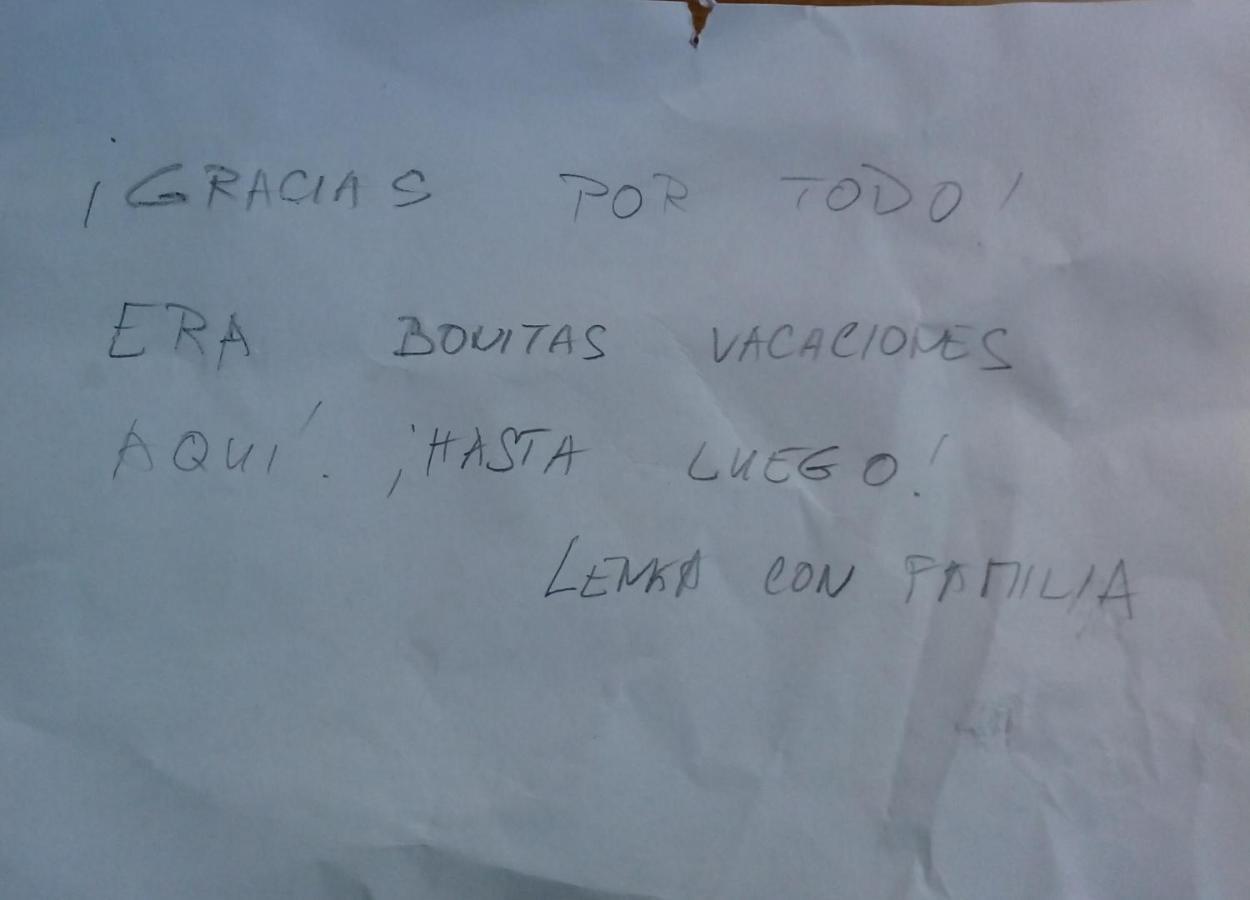 ¡GRACIAS POR TODO!
ERA BONITAS VACACIONES
AQUÍ! ¡HASTA LUEGO!
LENKA CON FAMILIA